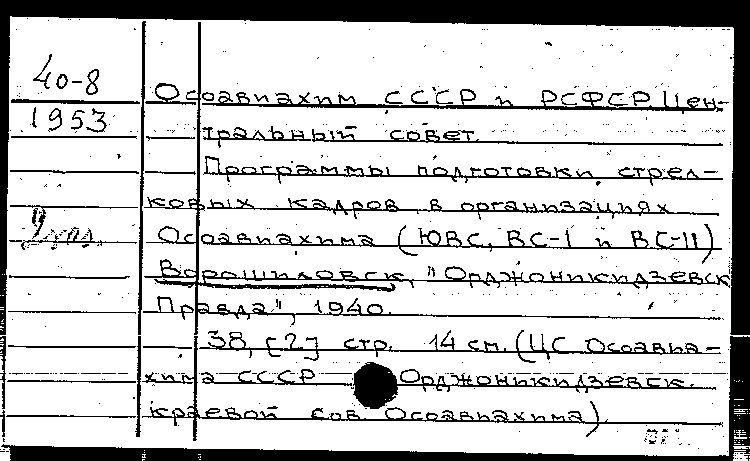 40-8
1953
Осоавиахим СССР и РСФСР Цен-
тральный совет.
Программы подготовки стрел-
ковых кадров в организациях
Осоавиахима (ЮВС, ВС-I и ВС-II)
Ворошиловск, "Орджоникидзевск
Правда", 1940.
38, [2] стр. 14 см. (ЦС Осоавиа-
хима СССР Орджоникидзевск.
краевой сов. Осоавиахима)